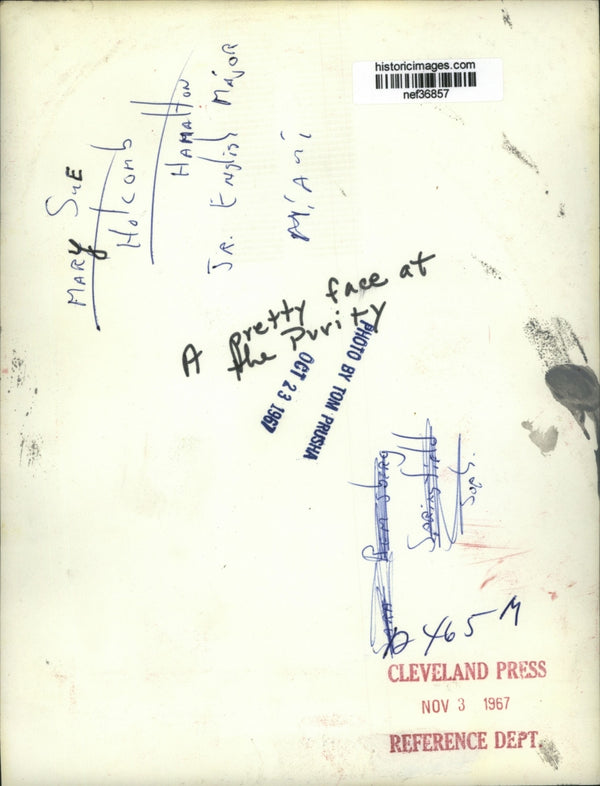 historicimages.com
nef36857
MARY SUE
Holcomb
HAMALTON
JR. English MAjor
MiAmi
A pretty face at
the Purity
PHOTO BY TOM PRUSHA
OCT 23 1967
Soph.
465-M
CLEVELAND PRESS
NOV 3 1967
REFERENCE DEPT.